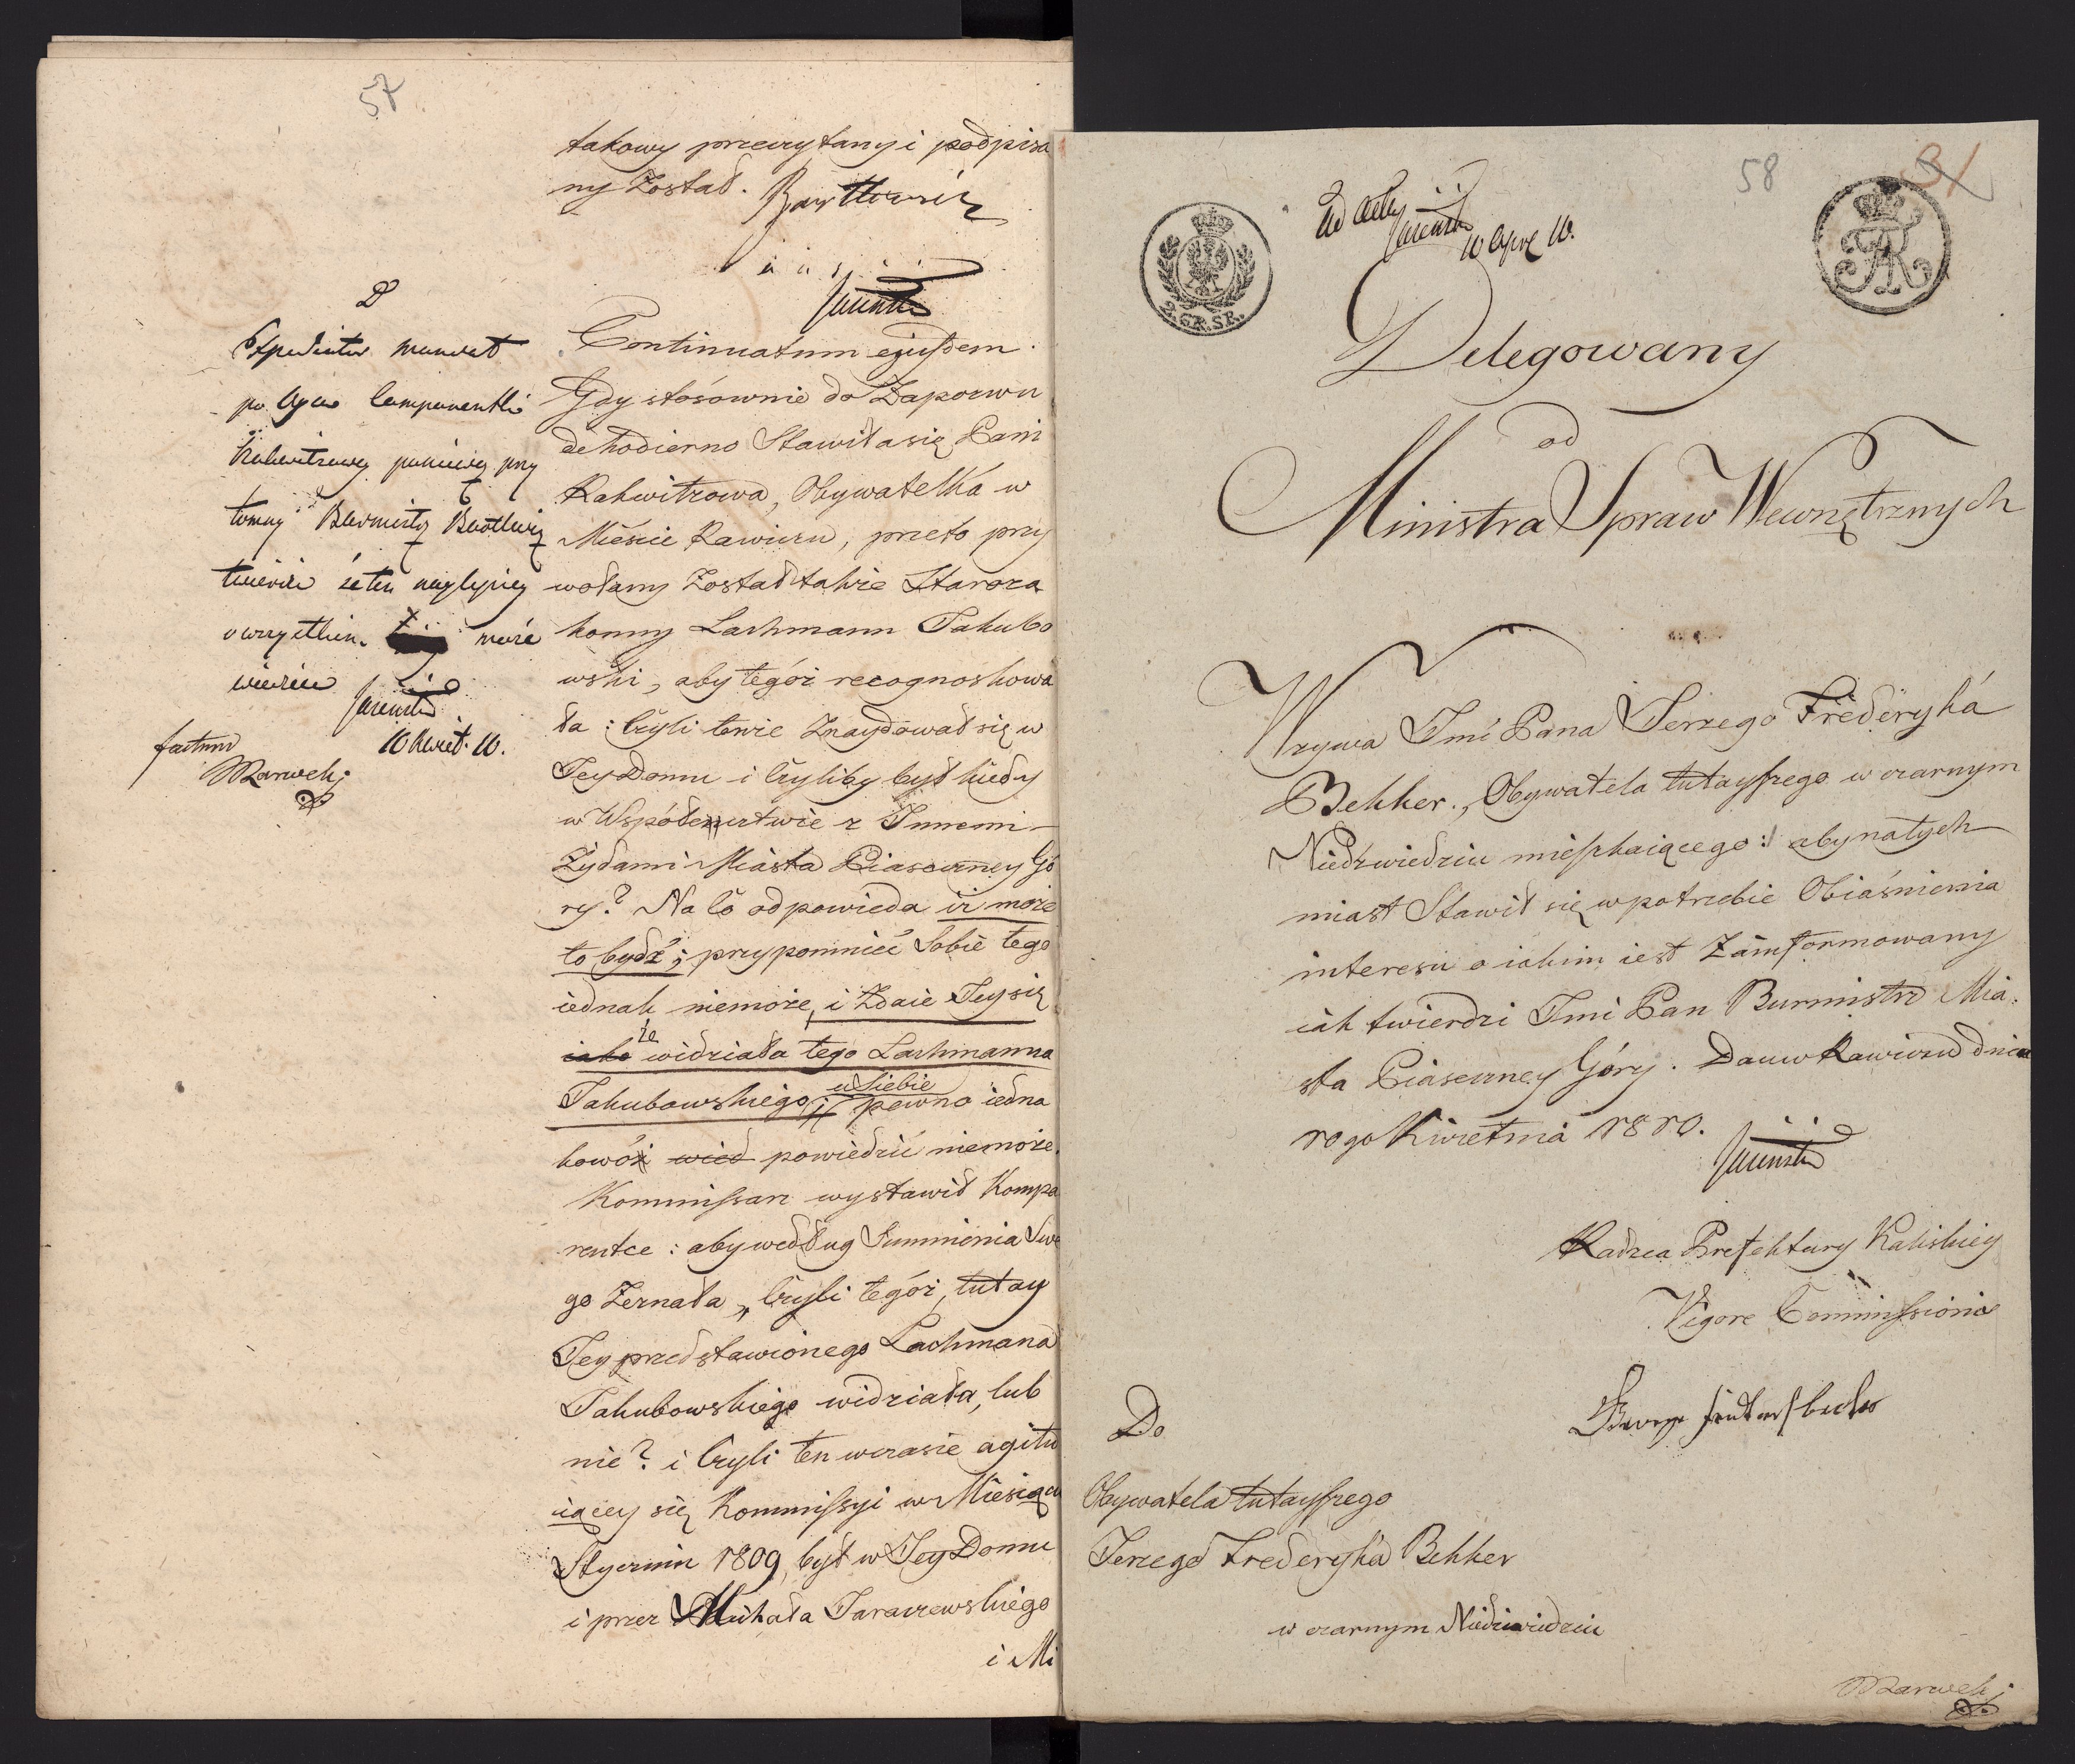 57
takowy przeczytany i podpisa
ny Został.
Continuatum ejusdem.
Gdy stósownie do Zaporwu
de hodierno Stawiła się Pani
Rakwitzowa, Obywatelka w
Mieście Rawiczu, przeto przy
wołany Został także Staroza
konny Lachmann Jakubo
wski, aby tegóż recognoskowa
ła: Czyli tenże Znaydował się w
Jey Domu i Czyliby był kiedy
w Współ z Innemi
Żydami Miasta Piaseczney Gó
ry? Na Co odpowieda iż może
to bydź; przypomnieć Sobie tego
iednak niemoże, i Zdaie Jey się
iako że widziała tego Lachmanna
Jakubowskiego u Siebie pewno iedna
kowóż wied powiedzić niemoże.
Kommissarz wystawił Kompa
rentce: aby według Summienia Swe
go Zeznała, Czyli tegóż, tutay
Jey przedstawionego Lachmana
Jakubowskiego widziała, lub
nie? i Czyli ten w czasie agitu
iącey się Kommissyi w Miesiącu
Styczniu 1809, był w Jey Domu
i przez Michała Taraczewskiego
i Mi
Expediatur mandat
po Comparentki
tomny Burmistrz Bartlewicz
twierdzi że ten naylepiey
o wszystkim może
wiedzieć
10 Kwiet. 10.
factum
Marwek
58
31
2. GR. SR.
Ad acta
10 Apr. 10.
Delegowany
od
Ministra Spraw Wewnętrznych
Wzywa Jmć Pana Jerzego Fryderyka
Bekker., Obywatela tutayszego w czarnym
Niedzwiedziu mieszkaiącego: aby natych
miast Stawił się w potrzebie Obiaśnienia
interesu o iakim iest Zainformowany
iak twierdzi Jmć Pan Burmistrz Mia:
sta Piaseczney Góry. Dan w Rawiczu dnia
10go Kwietnia 1810.
Radzca Prefektury Kaliskiey
Vigore Commissionis
Do
Obywatela tutayszego
Jerzego Frederyka Bekker
w czarnym Niedzwiedziu
Marwek